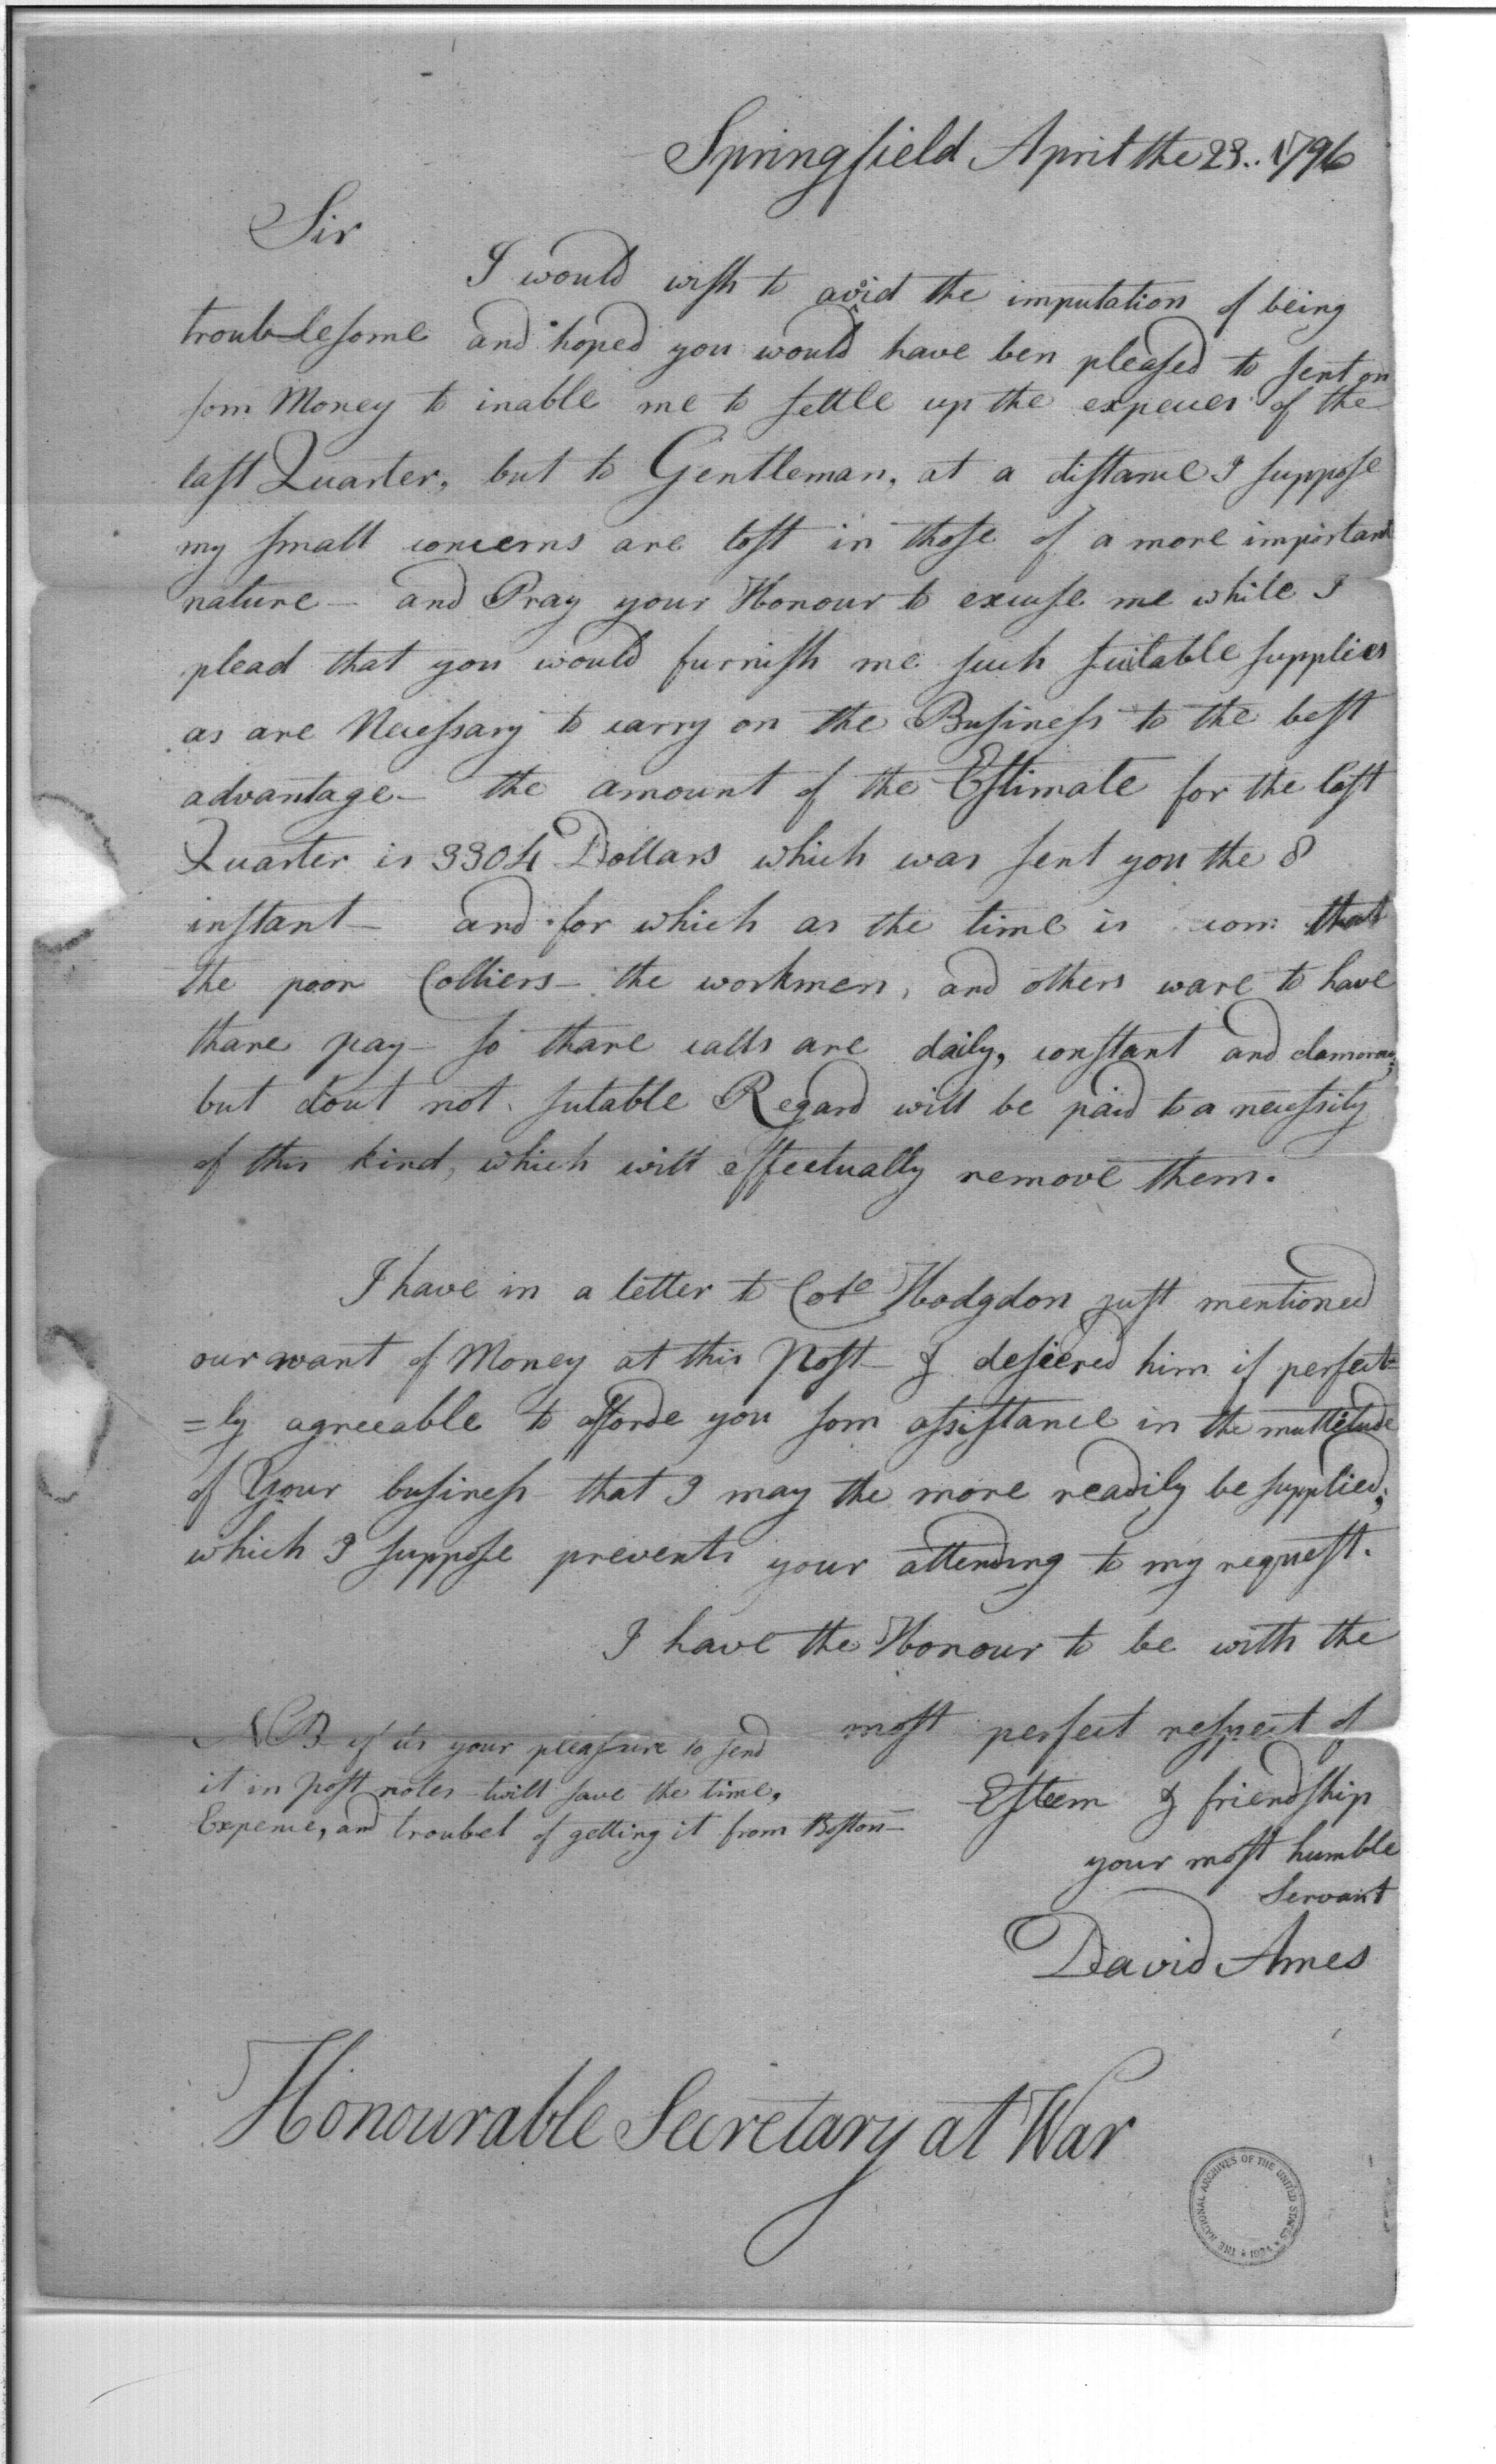 Springfield April the 23.. 1796
Sir
I would wish to avoid the imputation of being
troublesome and hoped you would have ben pleased to sent on
som Money to inable me to settle up the expences of the
last Quarter, but to Gentleman, at a distance I suppose
my small concerns are lost in those of a more important
nature— and Pray your Honour to excuse me while I
plead that you would furnish me such suitable supplies
as are Necessary to carry on the Business to the best
advantage— the amount of the Estimate for the last
Quarter is 3304 Dollars which was sent you the 8
instant— and for which as the time is com that
the poor Colliers— the workmen, and others ware to have
thare pay— so thare calls are daily, constant and clamorous,
but dout not sutable Regard will be paid to a necessity
of this kind, which will effectually remove them.
I have in a letter to Colo Hodgdon just mentioned
our want of Money at this Post— & desiered him if perfect=
=ly agreeable to afforde you som assistance in the multetude
of Your business that I may the more readily be supplied;
which I suppose prevents your attending to my request.
I have the Honour to be with the
most perfect respect of
Esteem & friendship
your most humble
Servant
David Ames
NB if its your pleasure to send
it in Post notes twill save the time,
Expence, and troubel of getting it from Boston—
Honourable Secretary at War
THE NATIONAL ARCHIVES OF THE UNITED STATES ★ 1934 ★